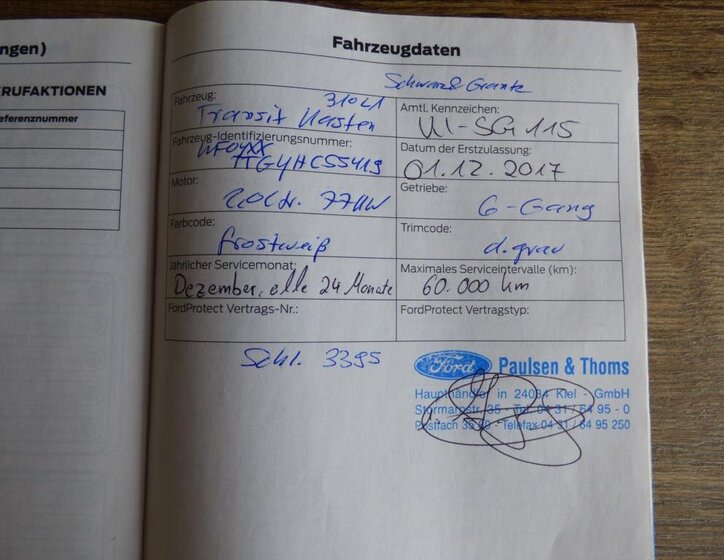 ngen)
RUFAKTIONEN
eferenznummer
Fahrzeugdaten
Fahrzeug:
310 L1
Transit Kasten
Amtl. Kennzeichen:
SG 115
Fahrzeug-Identifizierungsnummer:
WF0YXX
TTGYHC55419
Datum der Erstzulassung:
01.12.2017
Motor:
2,0 Ltr. 77KW
Getriebe:
6-Gang
Farbcode:
frostweiß
Trimcode:
d.grau
Jährlicher Servicemonat:
Dezember, alle 24 Monate
Maximales Serviceintervalle (km):
60.000 km
FordProtect Vertrags-Nr.:
FordProtect Vertragstyp:
Schl. 3395
Ford
Paulsen & Thoms
Haupthändler in 24034 Kiel - GmbH
Stormarnstr. 35 - Tel. 04 31 / 64 95 - 0
Postfach - Telefax 04 31 / 64 95 250